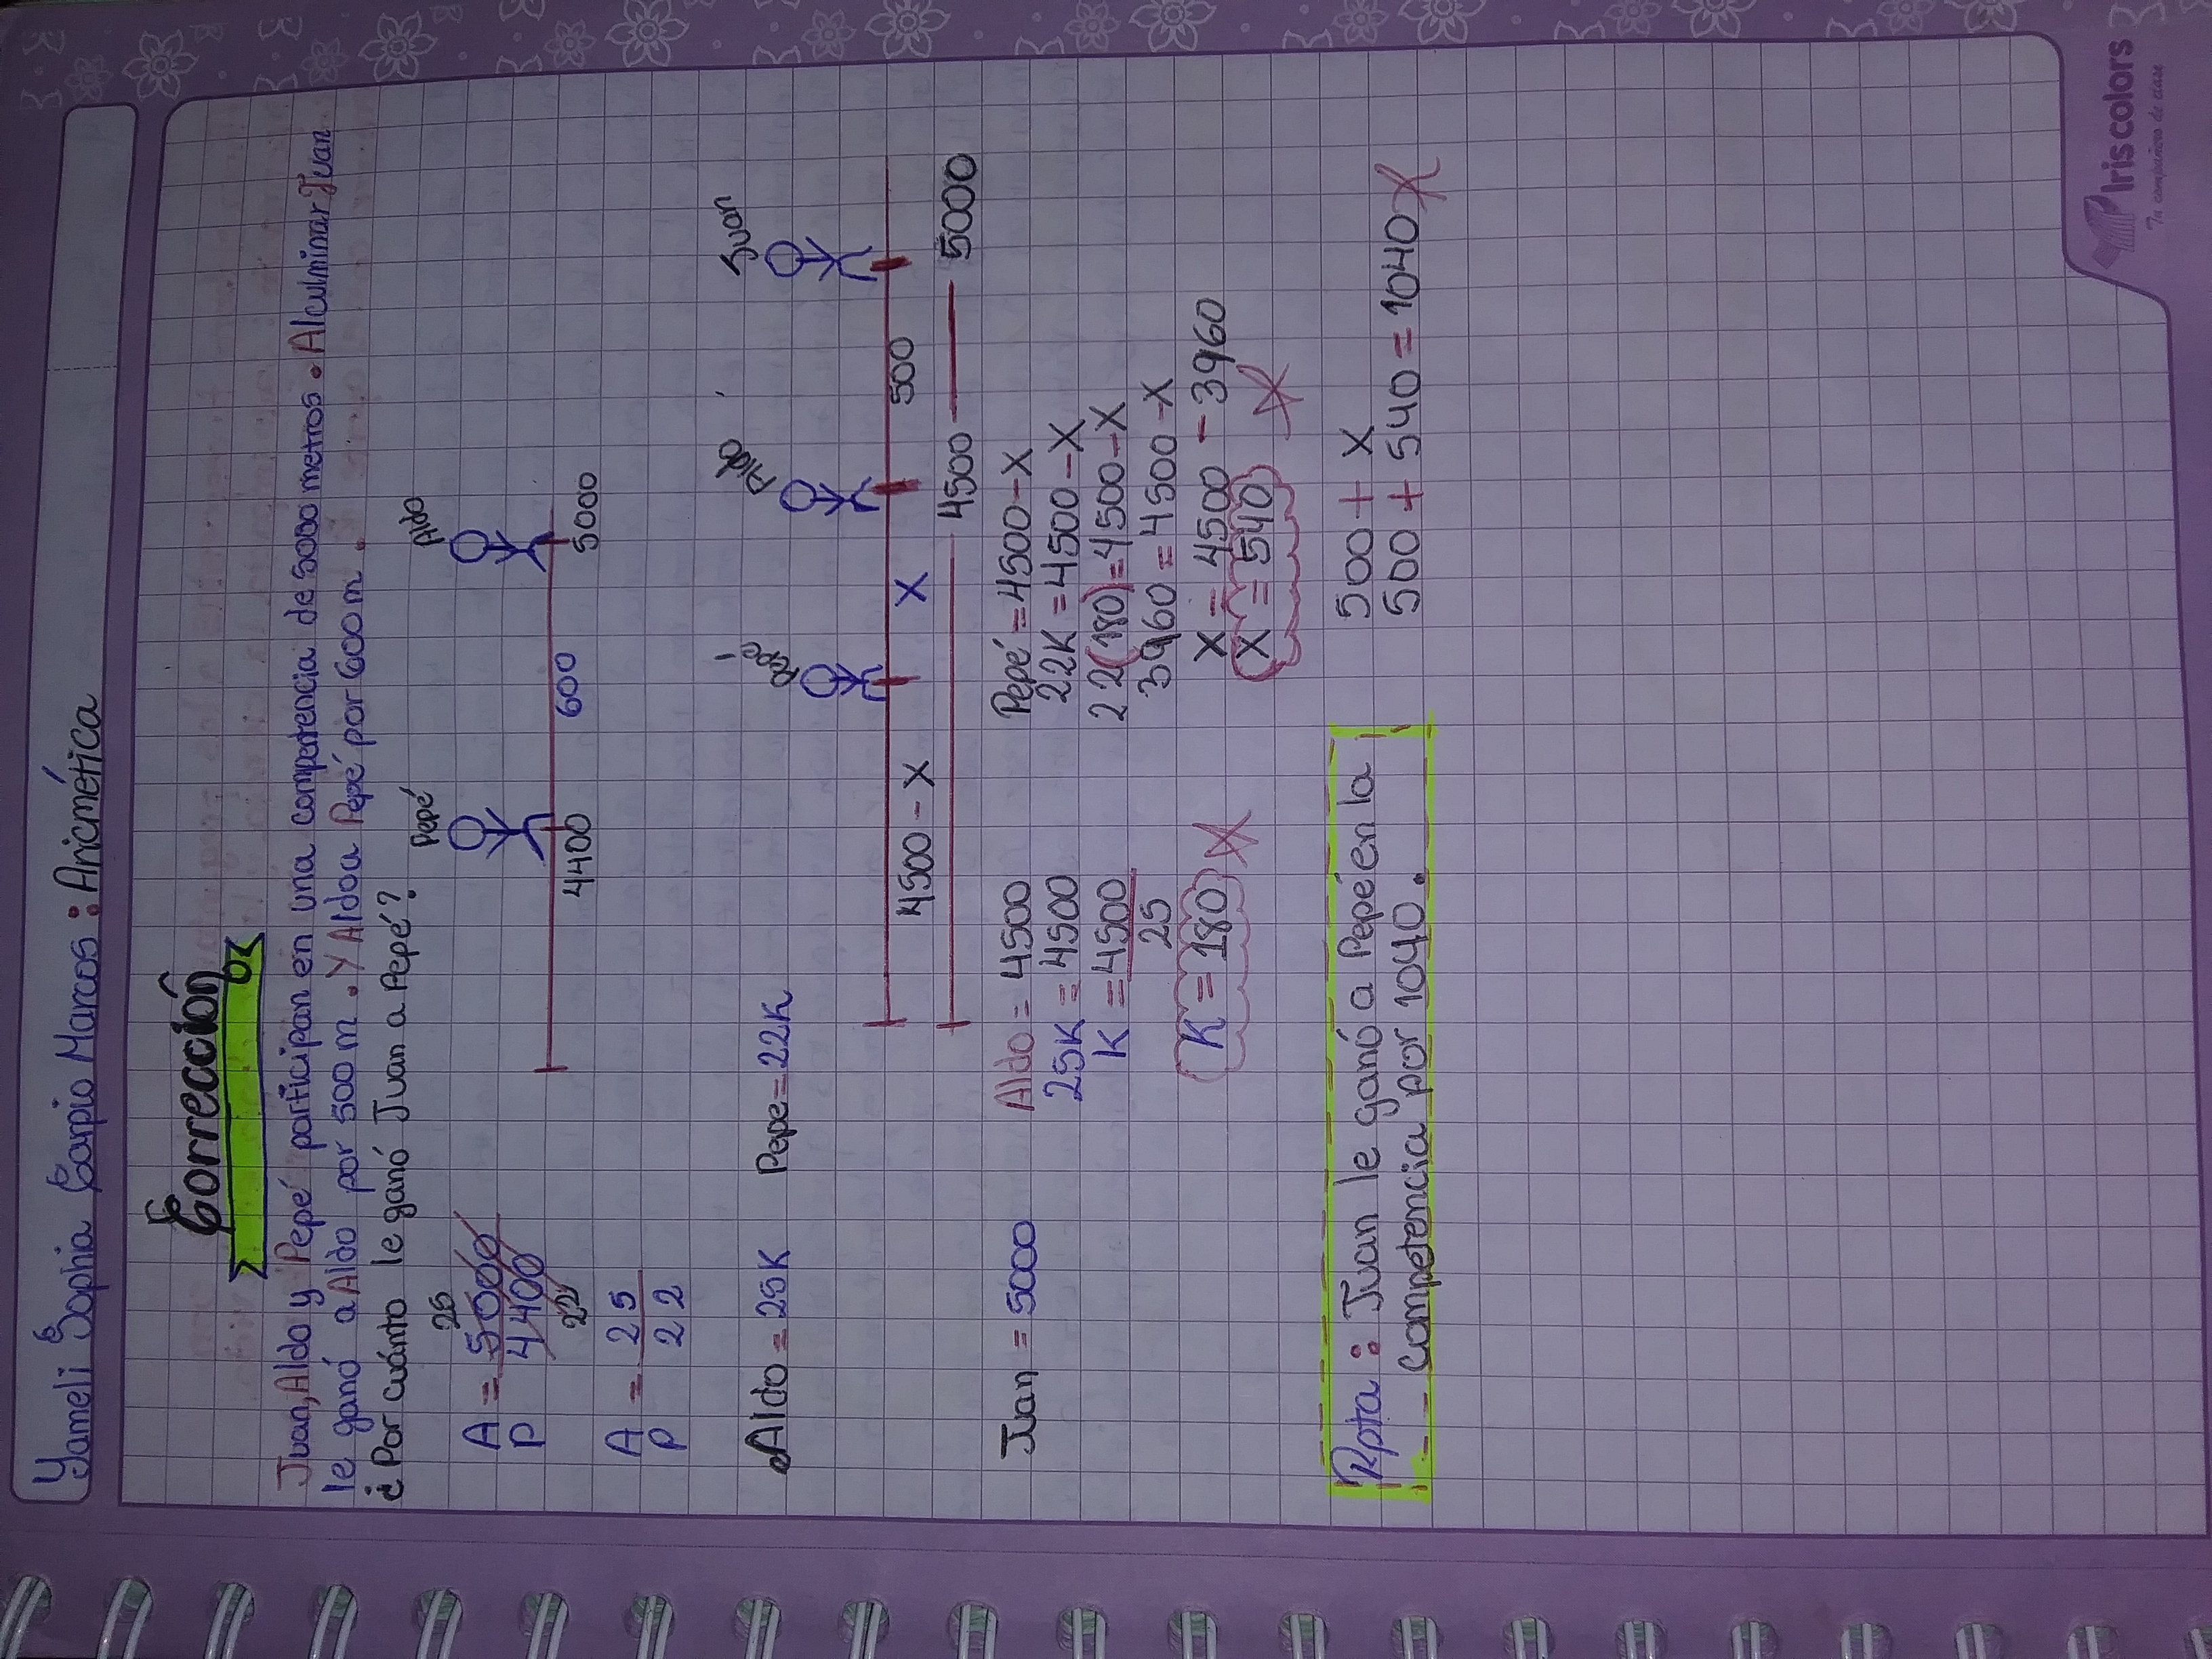 Yameli Sophia Carpio Marcos : Aricmética
Corrección
Juan, Aldo y Pepé participan en una competencia de 5000 metros. Al culminar Juan
le ganó a Aldo por 500 m. Y Aldo a Pepé por 600 m.
¿Por cuánto le ganó Juan a Pepé?
Pepé Aldo
25
A = 5000
P 4400
22
4400 600 5000
A = 25
P 22
Pepé Aldo Juan
Aldo = 25K Pepe = 22K
4500 - X X 500
4500 5000
Juan = 5000
Aldo = 4500
25K = 4500
K = 4500
25
K = 180
Pepé = 4500 - X
22K = 4500 - X
22(180) = 4500 - X
3960 = 4500 - X
X = 4500 - 3960
X = 540
Rpta : Juan le ganó a Pepé en la
competencia por 1040.
500 + X
500 + 540 = 1040
Iriscolors
Tu compañero de clase